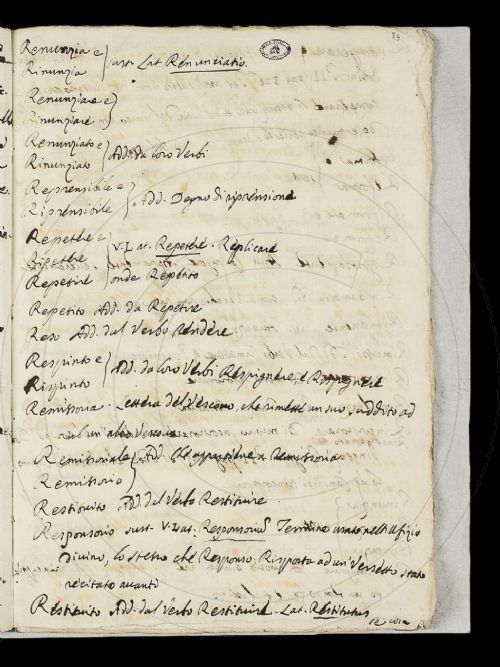 34
Renunzia e
Rinunzia } sust. Lat. Renunziatio.
Renunziare e
Rinunziare }
Renunziato e
Rinunziato } Add. da loro Verbi
Reprensibile e
Riprensibile } Add. Degno di riprensione
Repetere e
Ripetere } V. Lat. Repetere. Replicare
Repetire onde Repetito
Repetito Add. da Repetire
Reso Add. dal Verbo Rendere
Respinto e
Rispinto } Add. da loro Verbi Respignere, e Rispignere
Remissoria. Lettera del Vescovo, che rimette un suo suddito ad
un altro Vescovo
Remissoriale } Add. Che appartiene a Remissoria.
Remissorio }
Restituito Add. dal Verbo Restituire.
Responsorio sust. V. Lat. Responsoriu Termine usato nell'Ufizio
Divino, lo stesso che Responso, Risposta ad un Versetto stato
recitato avanti
Restituito Add. dal Verbo Restituire. Lat. Restitutus